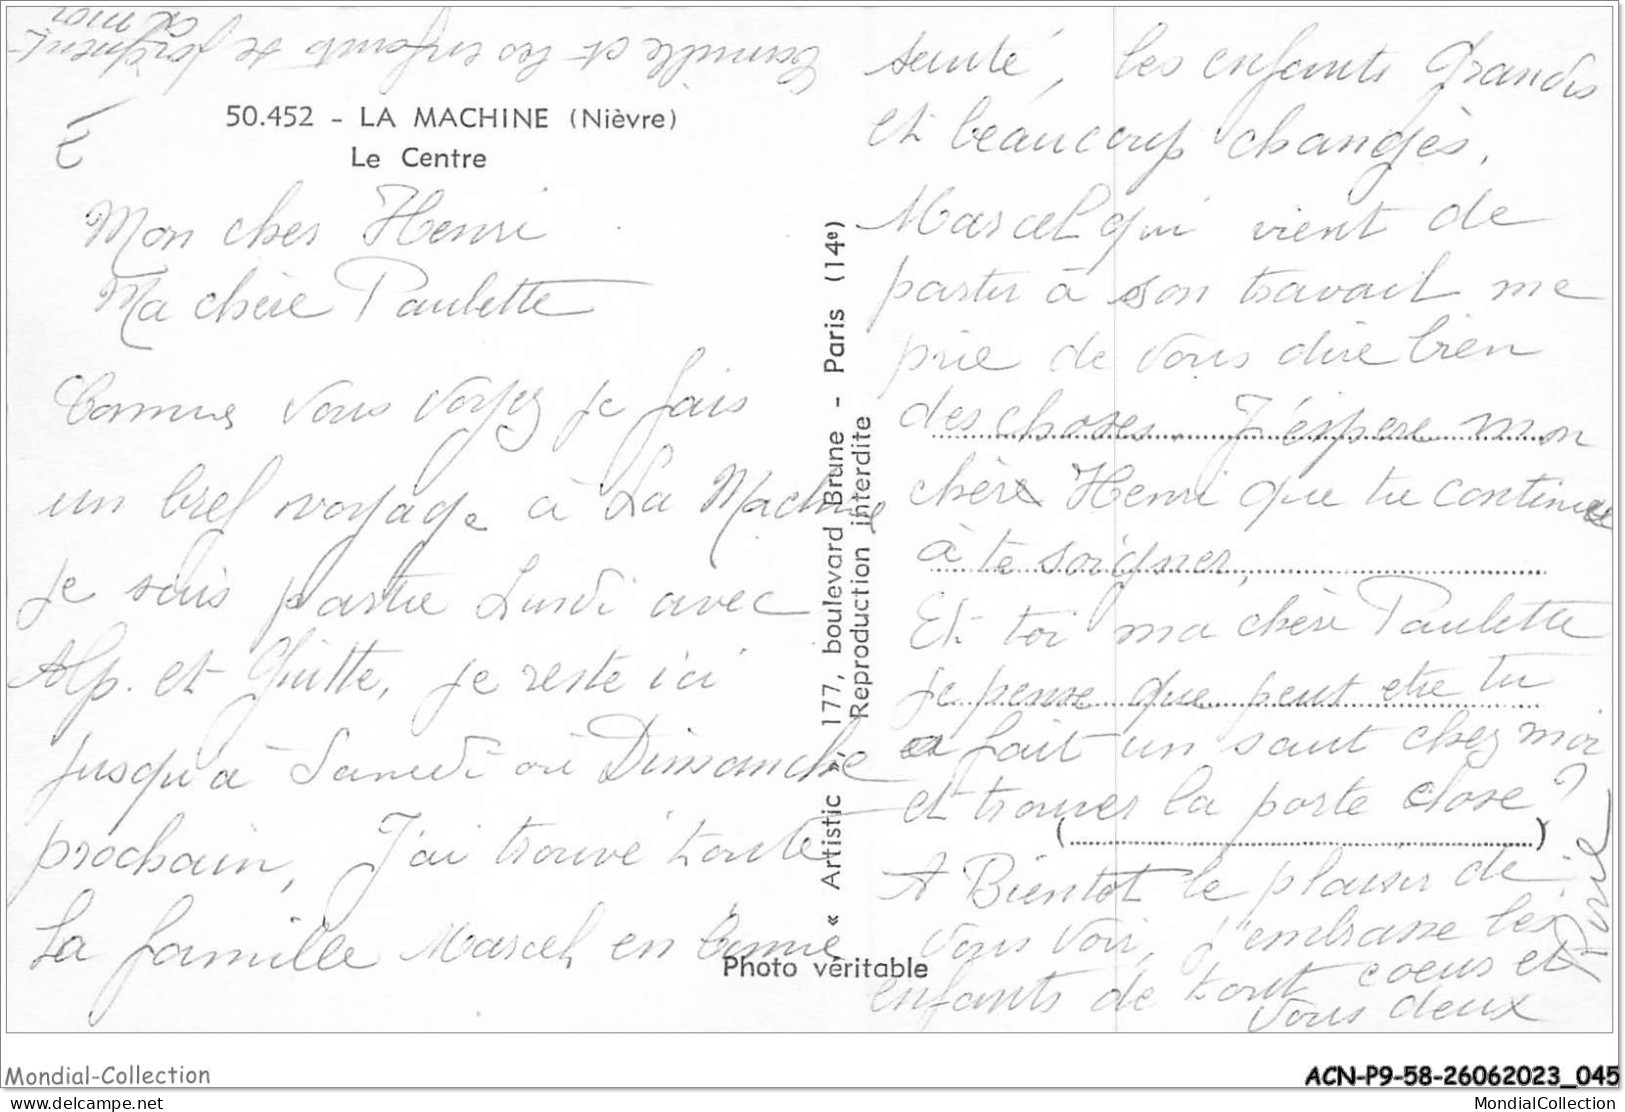 50.452 - LA MACHINE (Nièvre)
Le Centre
Mon cher Henri
Ma chère Paulette
Comme vous voyez je fais
un bref voyage à La Machine
je suis partie Lundi avec
Alp. et Guitte, je reste ici
jusqu'à Samedi où Dimanche
prochain, J'ai trouvé toute
La famille Marcel en bonne
santé, les enfants Grandis
et beaucoup changés,
Marcel qui vient de
partir à son travail me
prie de vous dire bien
des choses. J'éspere mon
chère Henri que tu continues
à te soigner,
Et toi ma chère Paulette
je pense que peut etre tu
a fait un saut chez moi
et trouver la porte close?
A Bientot le plaisir de
vous voir, j'embrasse les
enfants de tout coeur et
vous deux
Camille et les enfants se joignent
à moi
« Artistic » 177, boulevard Brune - Paris (14e)
Reproduction interdite
Photo véritable
Mondial-Collection
ACN-P9-58-26062023_045
www.delcampe.net
MondialCollection